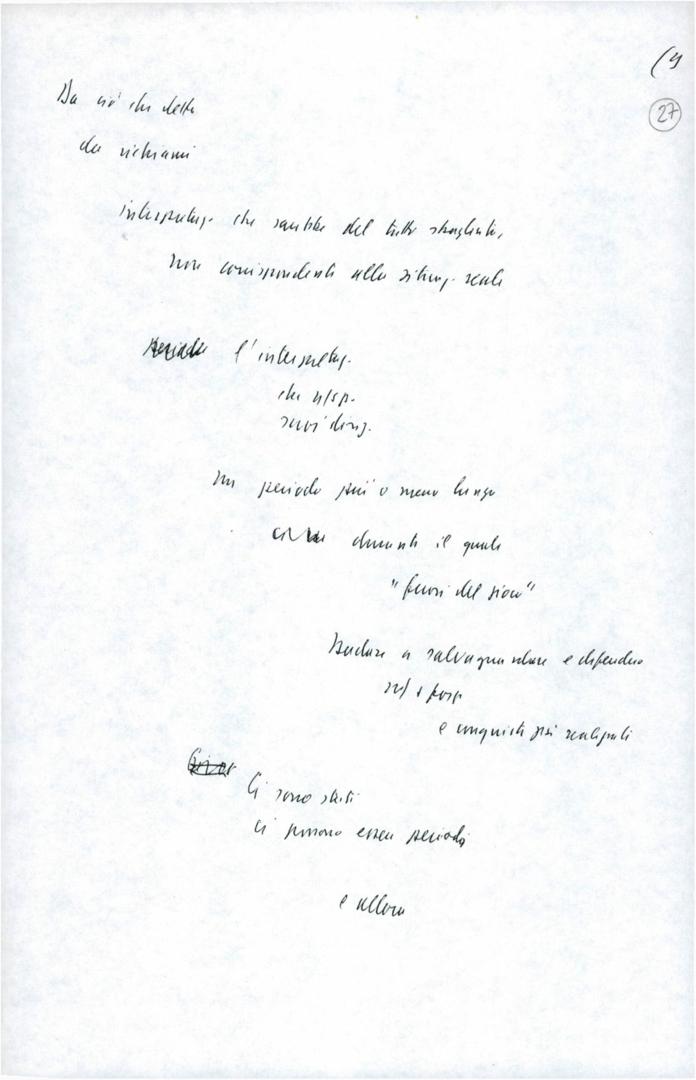 (4
27
Da ciò che detto
da richiami
interpretaz. che sarebbe del tutto sbagliata,
non corrispondente alla situaz. reale
l'interpretaz.
che
un periodo più o meno lungo
durante il quale
"fuori del gioco"
Badare a salvaguardare e difendere
e conquiste già realizzate
Ci sono stati
ci possono essere periodi
e allora